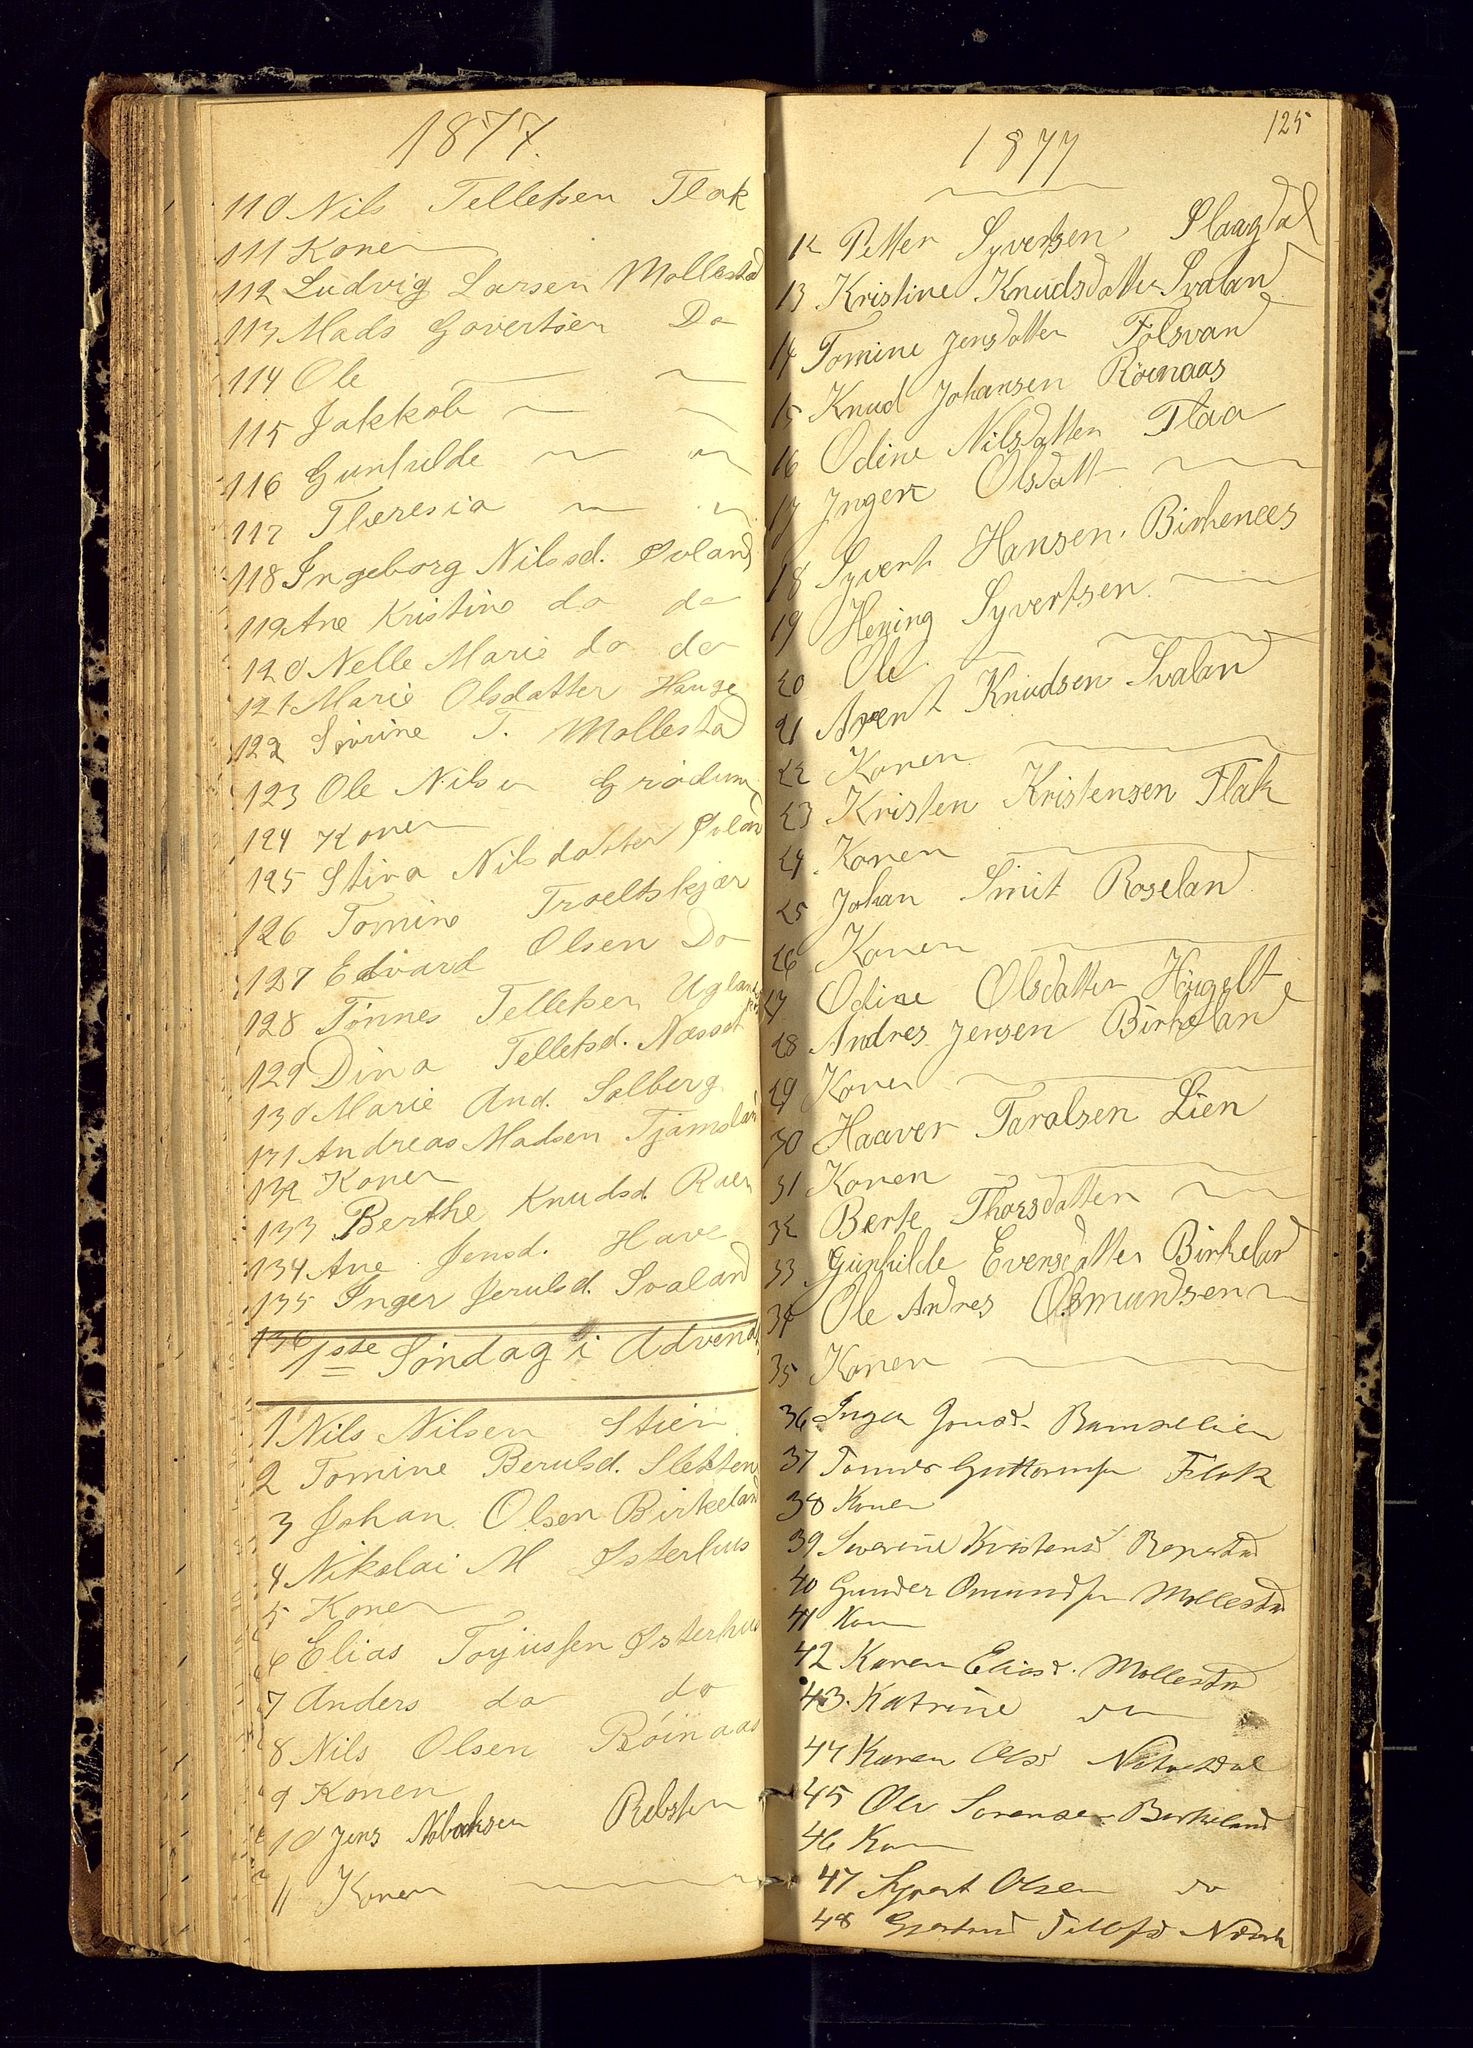 1877.
110 Nils Tellefsen Flak
111 Konen
112 Ludvig Larsen Mollestad
113 Mads Govertsen Do
114 Ole
115 Jakkob
116 Gunhilde
117 Theresia
118 Ingeborg Nilsd. Øvland
119 Ane Kristine do do
120 Nelle Marie do do
121 Marie Olsdatter Hauge
122 Sivrine T. Mollestad
123 Ole Nilsen Grødum
124 Konen
125 Stina Nilsdatter Øvland
126 Tomine Troeltskjær
127 Edvard Olsen Do
128 Tønnes Tellefsen Ugland
129 Dina Tellefsd. Næsset
130 Marie And. Solberg
131 Andreas Madsen Tjømsland
132 Konen
133 Berthe Knudsd. Raen
134 Ane Jensd. Have
135 Inger Jerulsd. Svaland
136
1ste Søndag i Advend
1 Nils Nilsen Stien
2 Tomine Berulsd. Sletten
3 Johan Olsen Birkeland
4 Nikolai M Østerhus
5 Konen
6 Elias Torjussen Østerhus
7 Anders do do
8 Nils Olsen Röinaas
9 Konen
10 Jens Rebsten
11 Konen
125
1877
12 Petter Syvertsen Slaagdal
13 Kristine Knudsdatter Svalan
14 Tomine Jensdatter Folsvand
15 Knud Johansen Röenaas
16 Odine Nilsdatter Flaa
17 Inger Olsdatt
18 Syvert Hansen. Birkenees
19 Hening Syvertsen
20 Ole
21 Arent Knudsen Svalan
22 Konen
23 Kristen Kristensen Flak
24. Konen
25 Johan Smit Roselan
26 Konen
27 Odine Olsdatter Høigelt
28 Andres Jensen Birkelan
29 Konen
30 Haaver Taralsen Lien
31 Konen
32 Berte Thorsdatter
33 Gunhilde Evensdatter Birkelad
34 Ole Andres Osmundsen
35 Konen
36 Inger Jonsd. Bamselien
37 Tomes Guttormsen Flak
38 Konen
39 Severine Kristensd Repstad
40 Gunder Omundsen Mollestad
41 Kon
42 Karen Eliasd. Mollestad
43. Katrine do
44 Karen Olsd
45 Ole Sorensen Berkeland
46 Kon
47 Syvert Olsen do
48 Gjertrud Tellefsd